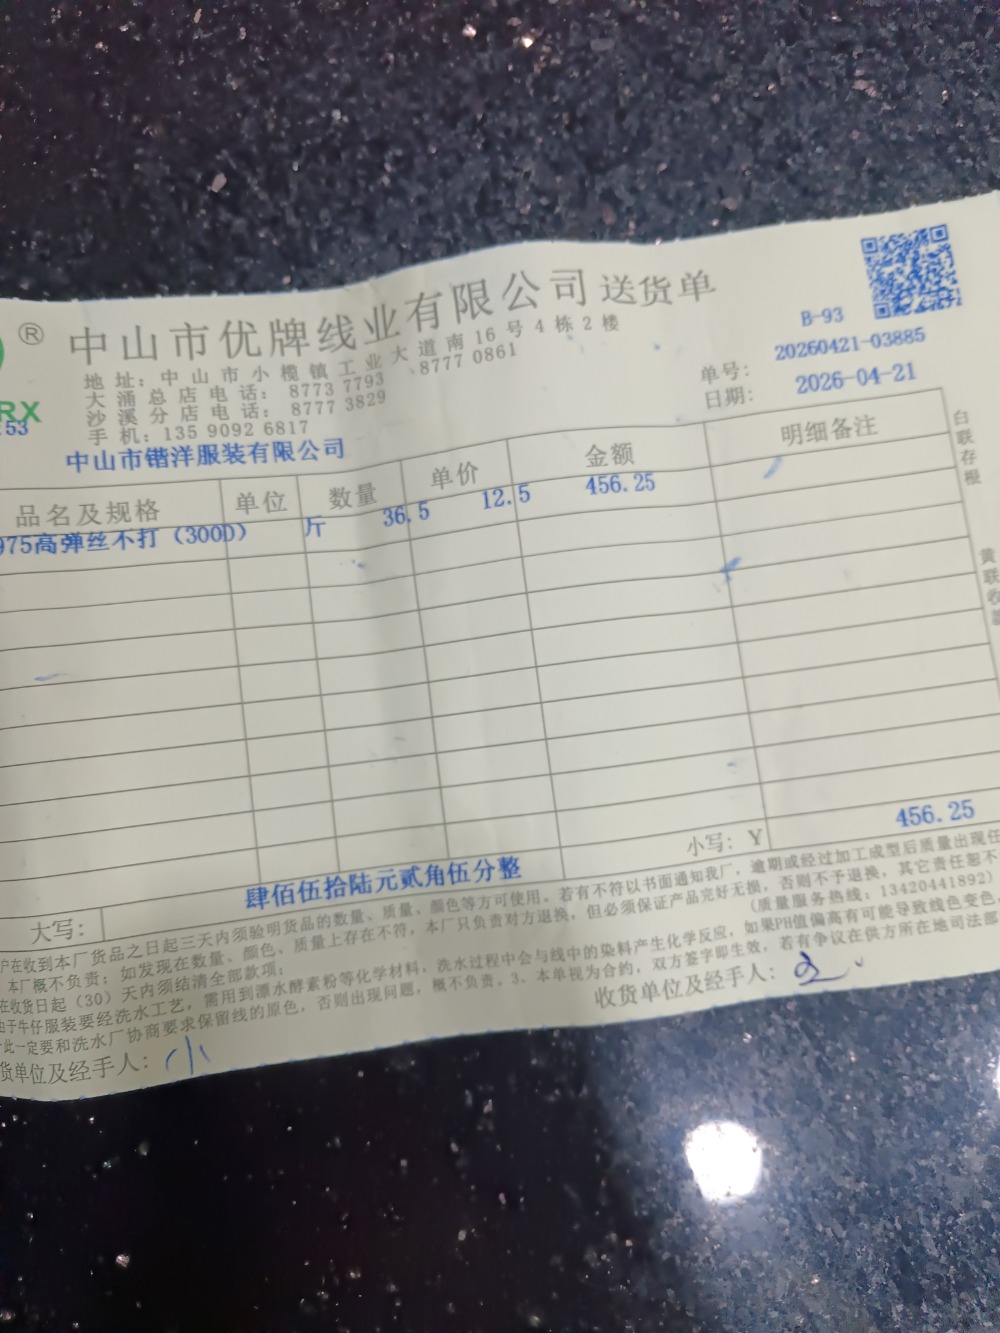 ® 中山市优牌线业有限公司 送货单
B-93
地址：中山市小榄镇工业大道南16号4栋2楼
大涌总店电话：8773 7793 8777 0861
沙溪分店电话：8777 3829
手机：135 9092 6817
RX
:53
单号：20260421-03885
日期：2026-04-21
中山市锴洋服装有限公司
品名及规格 单位 数量 单价 金额 明细备注
975高弹丝不打（300D） 斤 36.5 12.5 456.25
白联存根
黄联收
小写：Y 456.25
大写：肆佰伍拾陆元贰角伍分整
在收到本厂货品之日起三天内须验明货品的数量、质量、颜色等方可使用。若有不符以书面通知我厂，逾期或经过加工成型后质量出现任
本厂概不负责；如发现在数量、颜色、质量上存在不符，本厂只负责对方退换，但必须保证产品完好无损，否则不予退换，其它责任恕不
在收货日起（30）天内须结清全部款项； （质量服务热线：13420441892）
由于牛仔服装要经洗水工艺，需用到漂水酵素粉等化学材料，洗水过程中会与线中的染料产生化学反应，如果PH值偏高有可能导致线色变色，
此一定要和洗水厂协商要求保留线的原色，否则出现问题，概不负责。3、本单视为合约，双方签字即生效，若有争议在供方所在地司法部
货单位及经手人：小 收货单位及经手人：